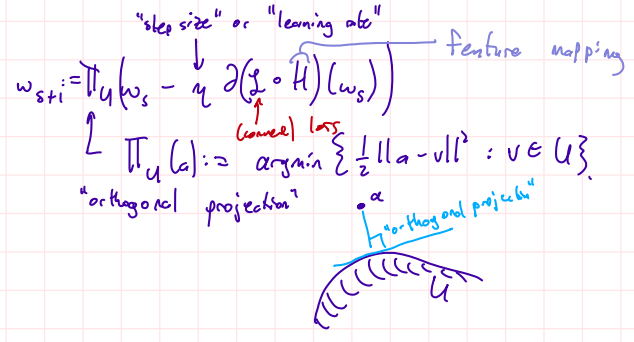 "step size" or "learning rate"
feature mapping
w_{s+i} = Π_U(w_s − η ∂(ℒ ∘ H)(w_s))
(convex) loss
Π_U(a) := argmin {½||a − v||² : v ∈ U}.
"orthogonal projection"
a
"orthogonal projection"
U